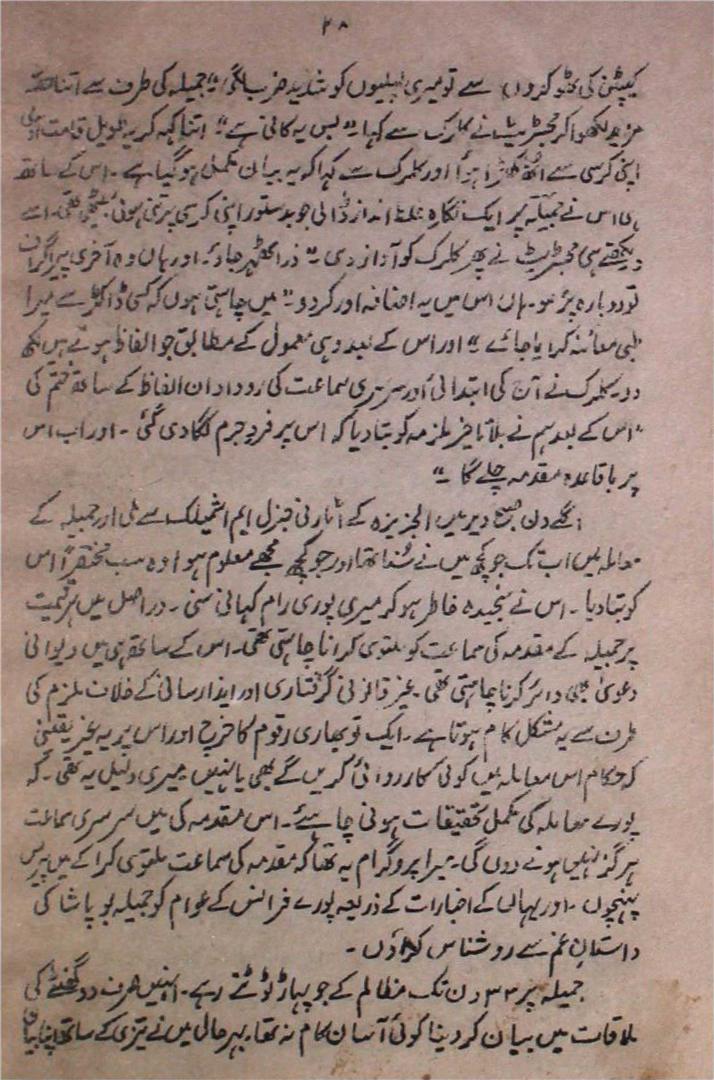 ۲۸
کیپٹن کی ٹھوکروں سے تو میری پسلیوں کو شدید ضرب لگی"۔ جمیلہ کی طرف سے اتنا
مزید لکھوا کر مجسٹریٹ نے کلرک سے کہا۔ "بس یہ کافی ہے" اتنا کہہ کر یہ طویل قامت آدمی
اپنی کرسی سے اٹھ کھڑا ہوا اور کلرک سے کہا کہ یہ بیان مکمل ہو گیا ہے۔ اس کے ساتھ
ہی اس نے جمیلہ پر ایک نگاہ غلط انداز ڈالی جو بدستور اپنی کرسی پر تنی ہوئی بیٹھی تھی۔ اسے
دیکھتے ہی مجسٹریٹ نے پھر کلرک کو آواز دی۔ "ذرا ٹھہر جاؤ۔ اور ہاں وہ آخری پیراگراف
تو دوبارہ پڑھو۔ ہاں اس میں یہ اضافہ اور کر دو۔" میں چاہتی ہوں کہ کسی ڈاکٹر سے میرا
طبی معائنہ کرایا جائے"۔ اور اس کے بعد وہی معمول کے مطابق جو الفاظ ہوتے ہیں لکھ
دو۔ کلرک نے آج کی ابتدائی اور سرسری سماعت کی روداد ان الفاظ کے ساتھ ختم کی
"اس کے بعد ہم نے بلا تاخیر ملزمہ کو بتا دیا کہ اس پر فرد جرم لگا دی گئی۔ اور اب اس
پر باقاعدہ مقدمہ چلے گا۔"
اگلے دن صبح دیر میں الجزیرہ کے اٹارنی جنرل ایم الشمیلک سے ملی اور جمیلہ کے
معاملہ میں اب تک جو کچھ میں نے سنا تھا اور جو کچھ مجھے معلوم ہوا وہ سب مختصراً اس
کو بتا دیا۔ اس نے سنجیدہ خاطر ہو کر میری پوری رام کہانی سنی۔ دراصل میں ہر قیمت
پر جمیلہ کے مقدمہ کی سماعت کو ملتوی کرانا چاہتی تھی۔ اس کے ساتھ ہی میں دیوانی
دعویٰ بھی دائر کرنا چاہتی تھی۔ غیر قانونی گرفتاری اور ایذا رسانی کے خلاف ملزم کی
طرف سے یہ مشکل کام ہوتا ہے۔ ایک تو بھاری رقوم کا خرچ اور اس پر یہ غیر یقینی
کہ حکام اس معاملہ میں کوئی کارروائی کریں گے بھی یا نہیں میری دلیل یہ تھی۔ کہ
پورے معاملہ کی مکمل تحقیقات ہونی چاہئے۔ اس مقدمہ کی میں سرسری سماعت
ہرگز نہیں ہونے دوں گی۔ میرا پروگرام یہ تھا کہ مقدمہ کی سماعت ملتوی کرا کے میں پیرس
پہنچوں۔ اور یہاں کے اخبارات کے ذریعہ پورے فرانس کے عوام کو جمیلہ بو پاشا کی
داستان غم سے روشناس کراؤں۔
جمیلہ پر ۳۳ دن تک مظالم کے جو پہاڑ ٹوٹتے رہے۔ انہیں صرف دو گھنٹے کی
ملاقات میں بیان کر دینا کوئی آسان کام نہ تھا۔ بہر حال میں نے تیزی کے ساتھ اپنا بیان